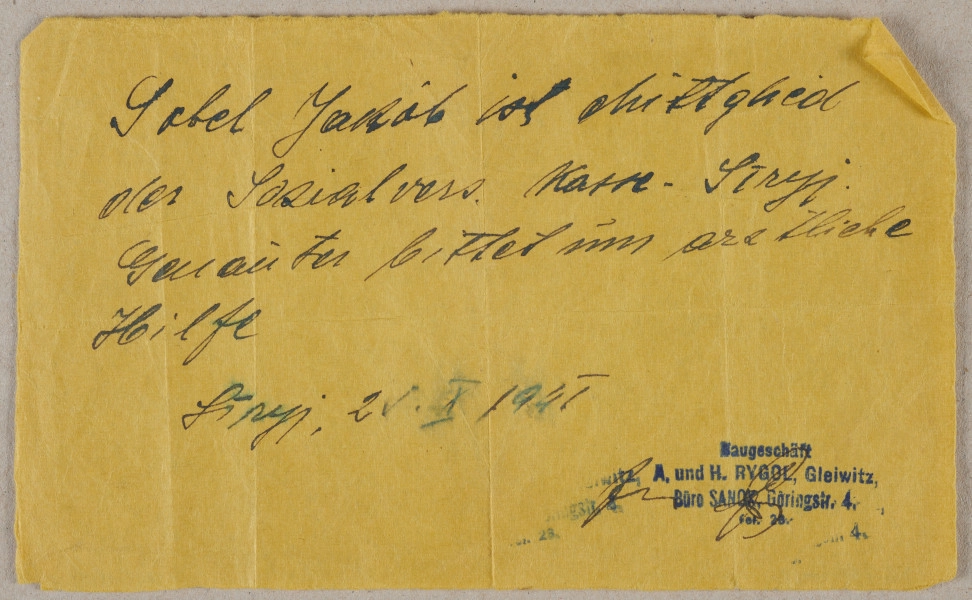 Sobel Jakób ist Mittglied
der Sozialvers. Kasse - Stryj.
Genauter bittet um arztliche
Hilfe
Stryj, 25. IX 1941
Baugeschäft
A. und H. RYGOL, Gleiwitz,
Büro SANOK, Göringstr. 4.
Fer. 28.